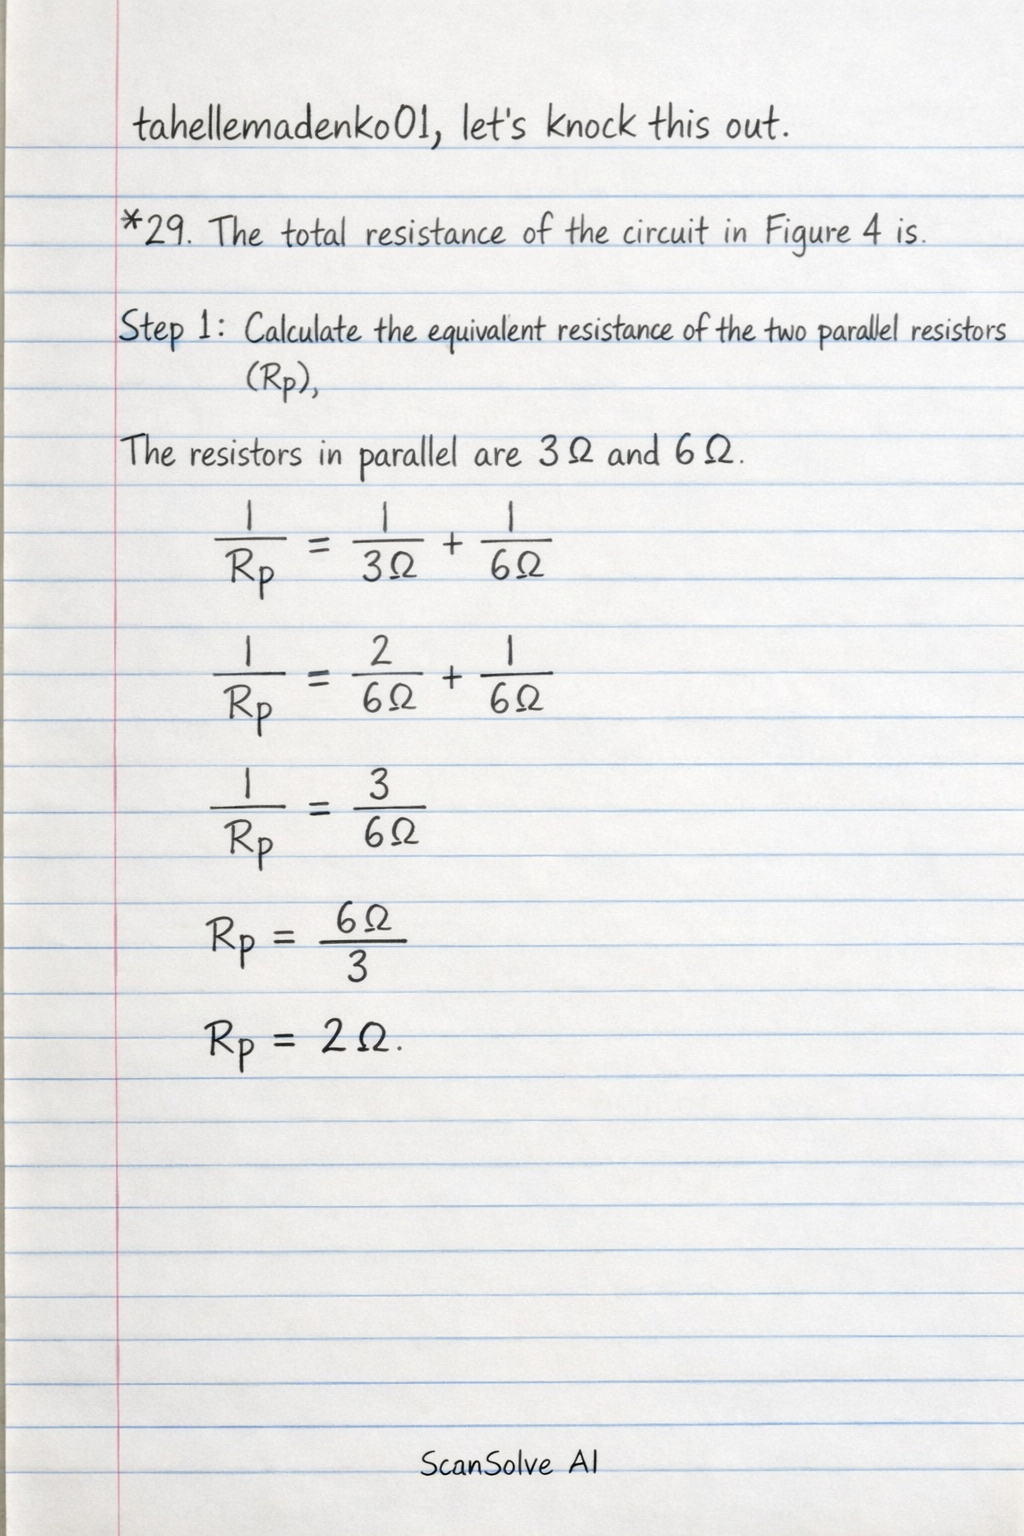 tahellemadenko01, let's knock this out.
*29. The total resistance of the circuit in Figure 4 is.
Step 1: Calculate the equivalent resistance of the two parallel resistors
(Rp),
The resistors in parallel are 3Ω and 6Ω.
1/Rp = 1/3Ω + 1/6Ω
1/Rp = 2/6Ω + 1/6Ω
1/Rp = 3/6Ω
Rp = 6Ω/3
Rp = 2Ω.
ScanSolve AI